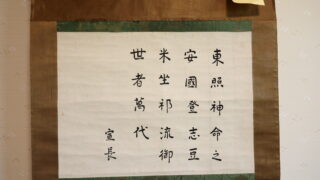 東照神命之
安國登志豆
米坐祁流御
世者萬代
宣長